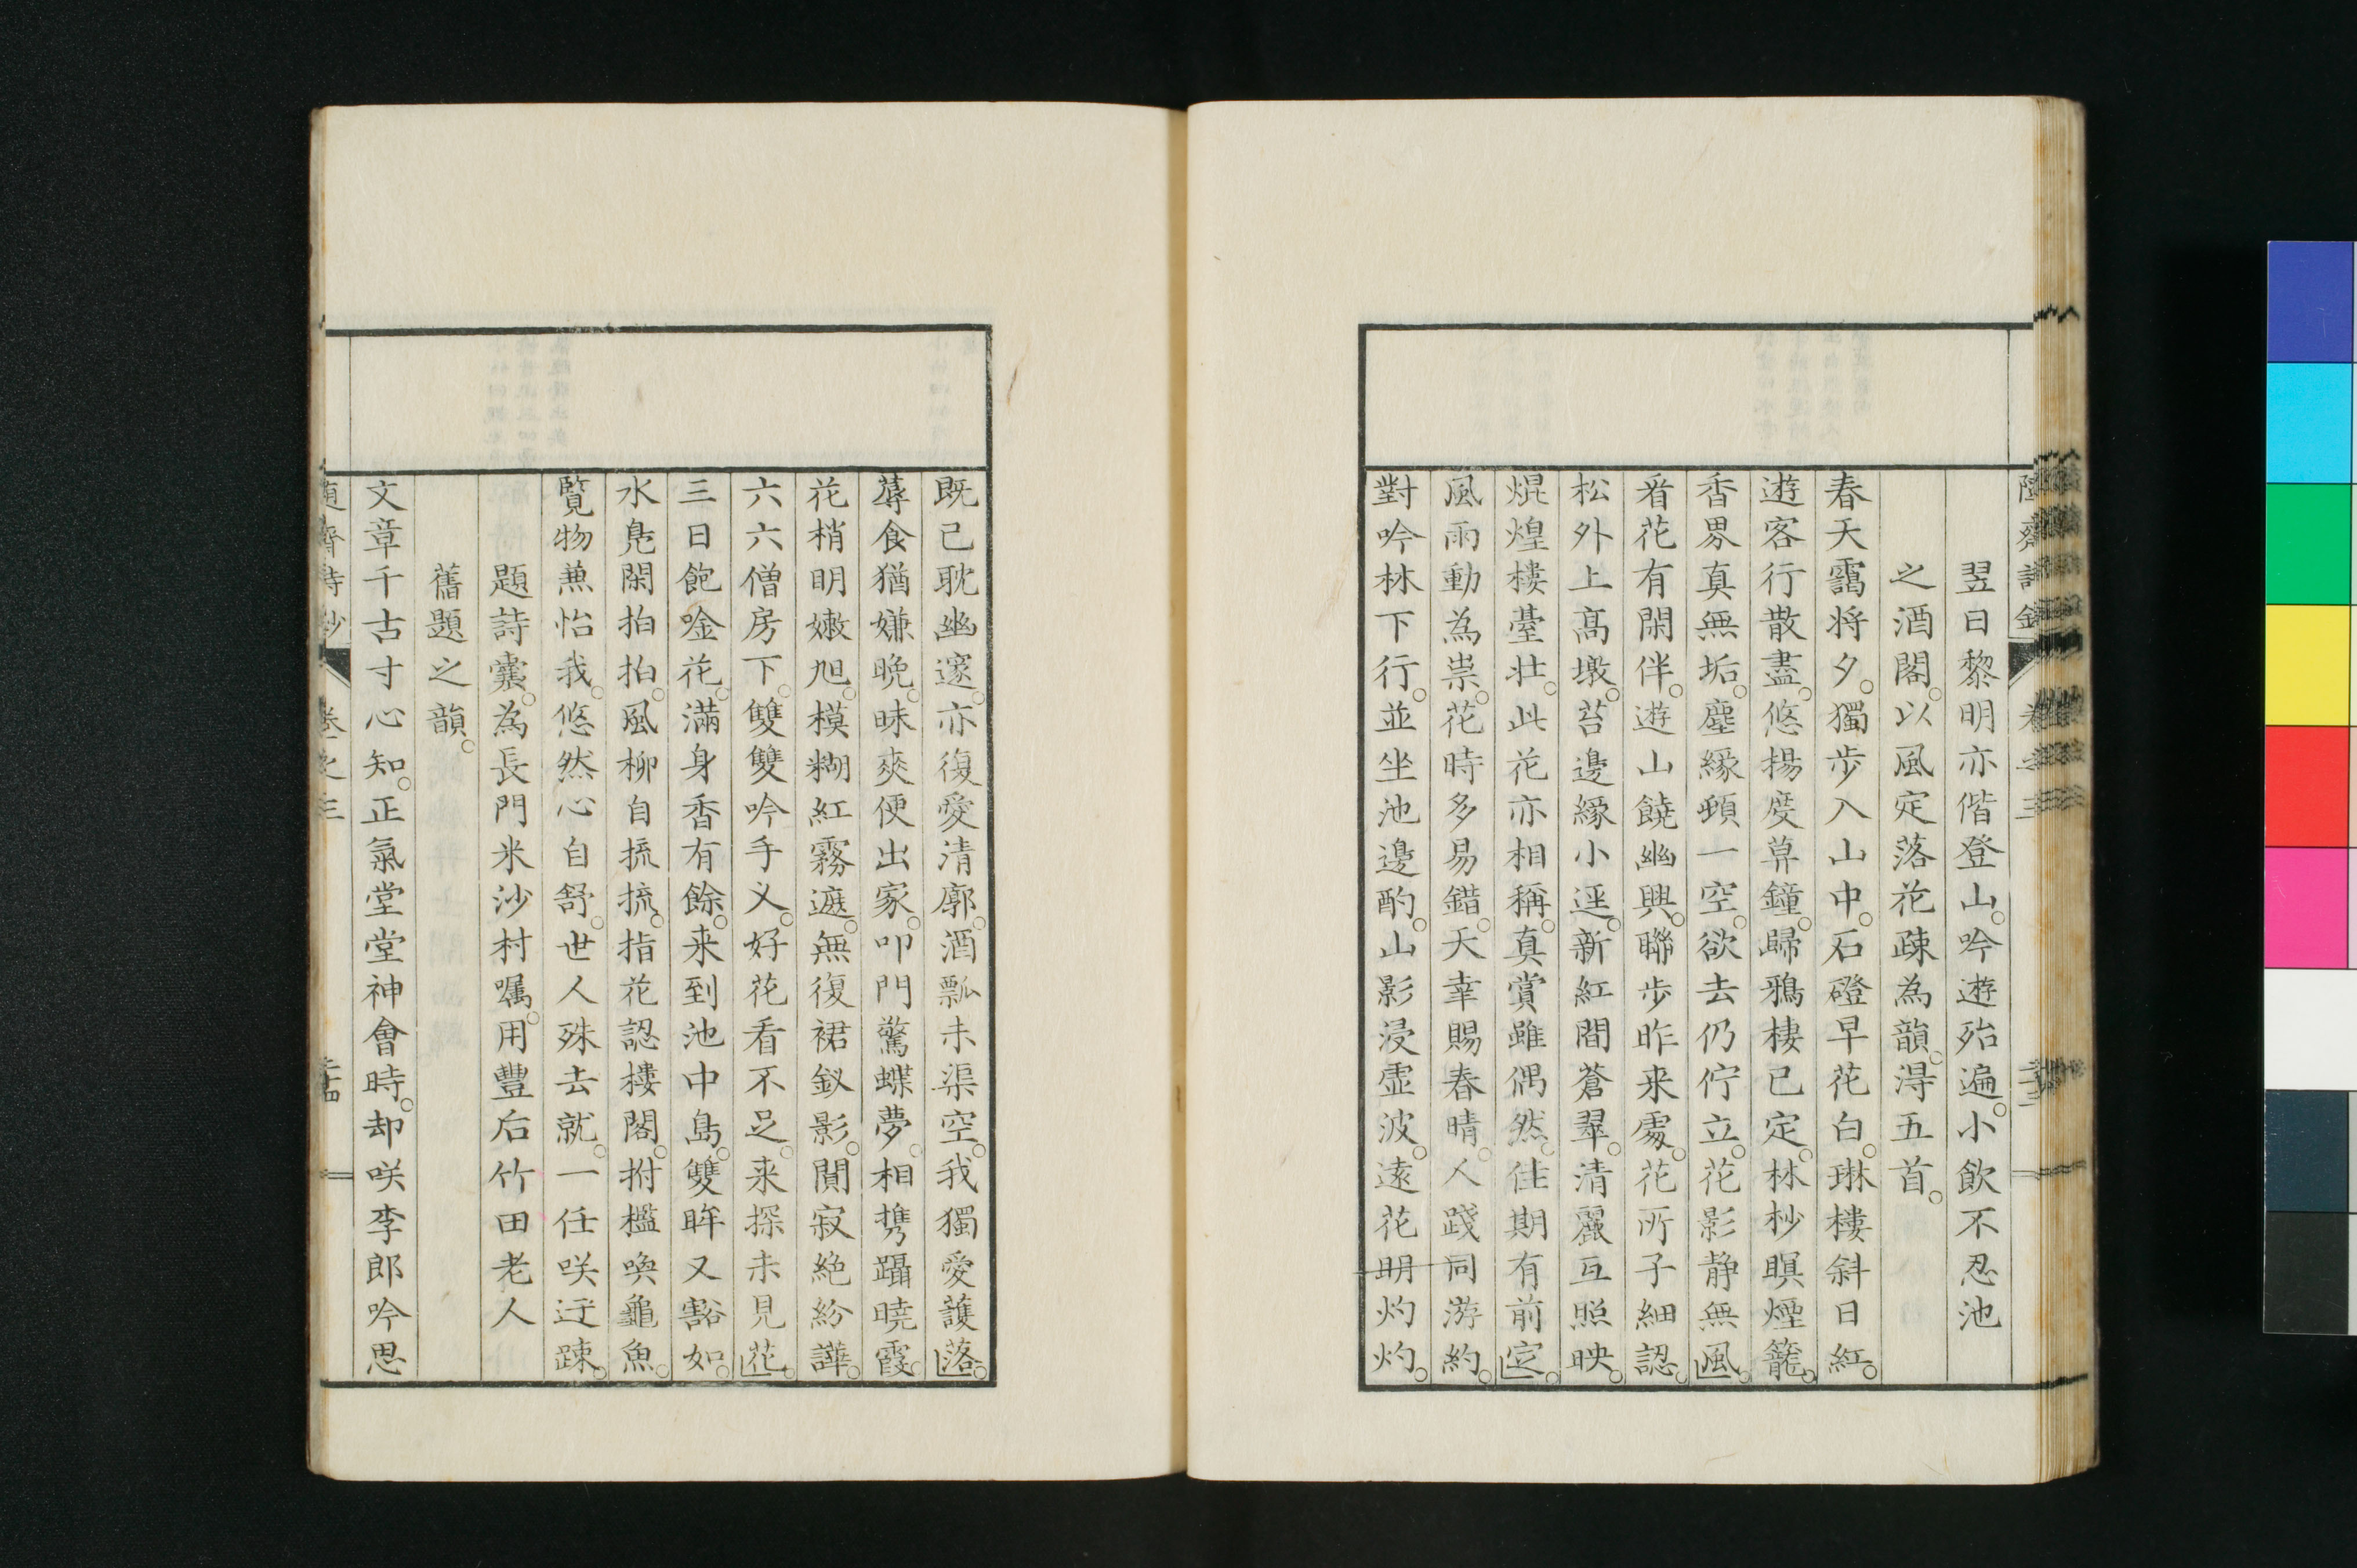 翌日黎明亦偕登山。吟遊殆遍。小飲不忍池
之酒閣。以風定落花疎為韻。淂五首。
春天靄将夕。獨歩入山中。石磴早花白。琳樓斜日紅。
遊客行散盡。悠揚度莫鐘。歸鴉棲已定。林杪暝煙籠。
香界真無垢。塵縁頓一空。欲去仍佇立。花影静無風。
看花有閑伴。遊山饒幽興。聯歩昨来處。花所子細認。
松外上髙墩。苔邊縁小逕。新紅間蒼翠。清麗互照映。
焜煌樓臺壮。此花亦相稱。真賞雖偶然。佳期有前定。
風雨動為祟。花時多易錯。天幸賜春晴。人踐同游約。
對吟林下行。並坐池邊酌。山影浸虚波。遠花明灼灼。
既已耽幽邃。亦復愛清廓。酒瓢未渠空。我獨愛護落。
蓐食猶嫌晩。昧爽便出家。叩門驚蝶夢。相携躡曉霞。
花梢明嫩旭。模糊紅霧遮。無復裙釵影。闃寂絶紛譁。
六六僧房下。雙雙吟手叉。好花看不足。来探未見花。
三日飽唫花。滿身香有餘。来到池中島。雙眸又豁如。
水鳧閑拍拍。風柳自捬梳。指花認樓閣。拊檻喚龜魚。
覽物兼怡我。悠然心自舒。世人殊去就。一任咲迂疎。
題詩囊。為長門米沙村嘱。用豐后竹田老人
舊題之韻。
文章千古寸心知。正氣堂堂神會時。却咲李郎吟思